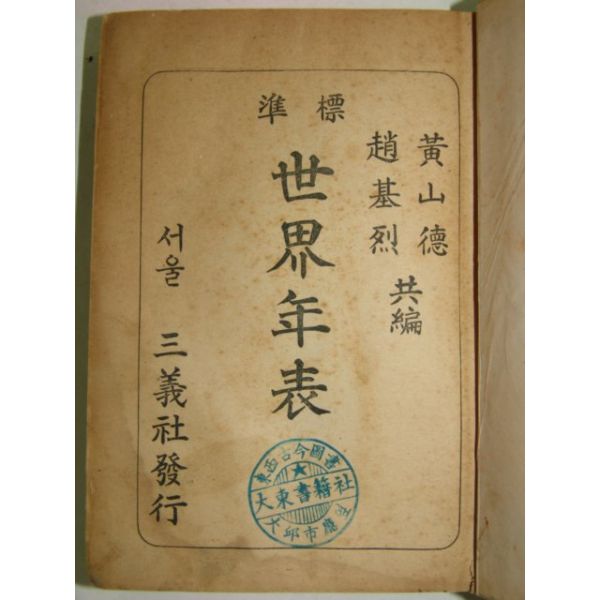 黃山德
趙基烈
共編
標準
世界年表
서울 三義社發行
東西古今圖書
大東書籍社
大邱市